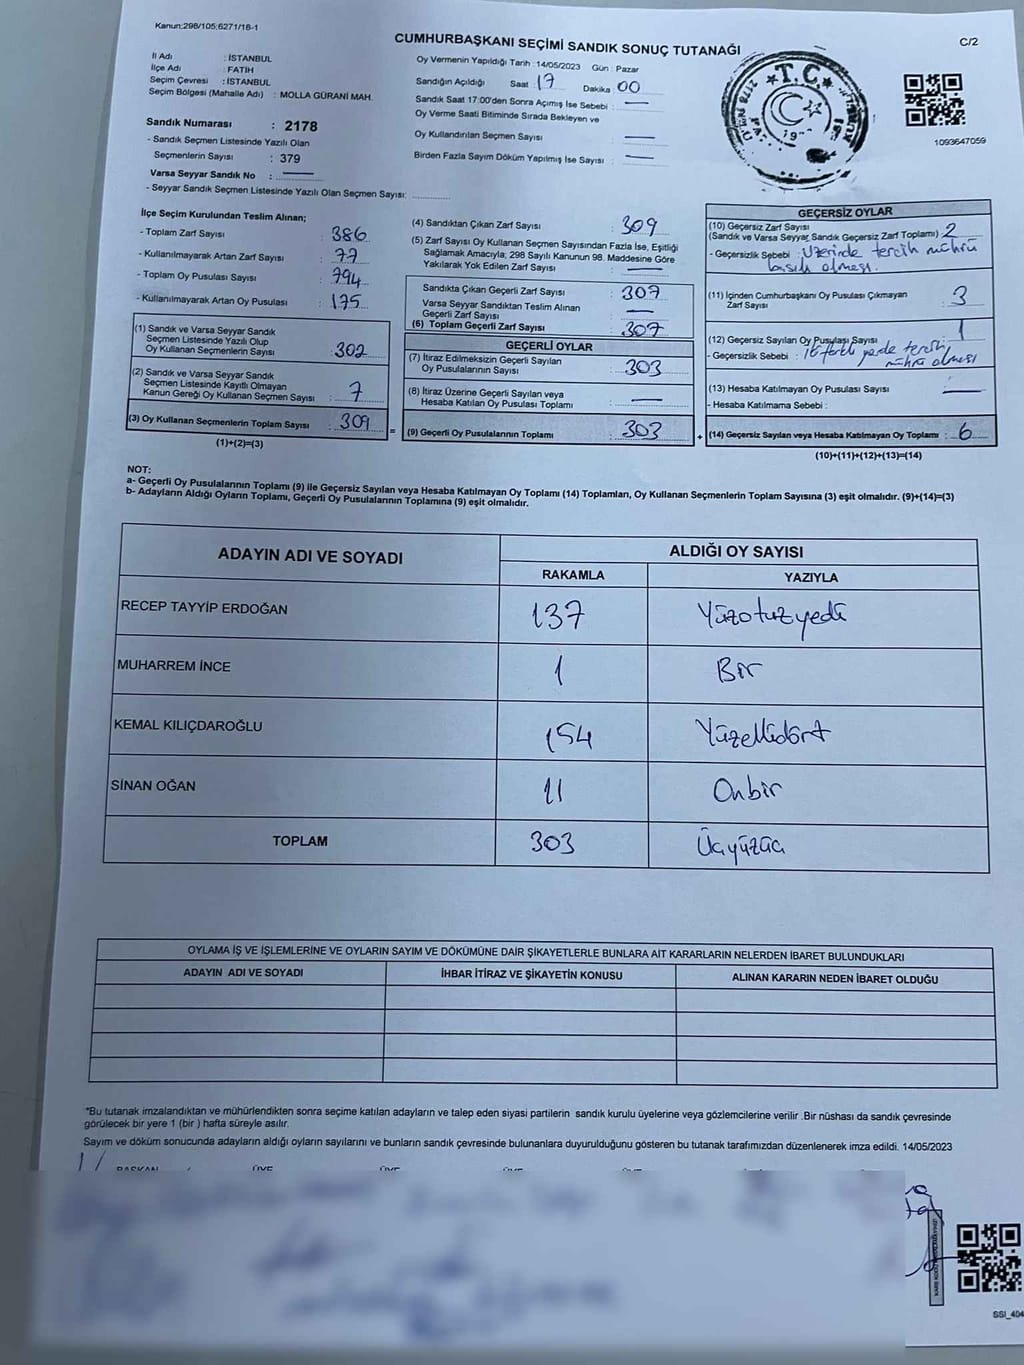 Kanun;298/105;6271/18-1
CUMHURBAŞKANI SEÇİMİ SANDIK SONUÇ TUTANAĞI
C/2
İl Adı : İSTANBUL
İlçe Adı : FATİH
Seçim Çevresi : İSTANBUL
Seçim Bölgesi (Mahalle Adı) : MOLLA GÜRANİ MAH.
Sandık Numarası : 2178
- Sandık Seçmen Listesinde Yazılı Olan
Seçmenlerin Sayısı : 379
Varsa Seyyar Sandık No :
- Seyyar Sandık Seçmen Listesinde Yazılı Olan Seçmen Sayısı:
Oy Vermenin Yapıldığı Tarih : 14/05/2023 Gün : Pazar
Sandığın Açıldığı Saat : 17 Dakika : 00
Sandık Saat 17:00'den Sonra Açımış İse Sebebi :
Oy Verme Saati Bitiminde Sırada Bekleyen ve
Oy Kullandırılan Seçmen Sayısı
Birden Fazla Sayım Döküm Yapılmış İse Sayısı :
T.C.
1093647059
İlçe Seçim Kurulundan Teslim Alınan;
- Toplam Zarf Sayısı : 386
- Kullanılmayarak Artan Zarf Sayısı : 77
- Toplam Oy Pusulası Sayısı : 794
- Kullanılmayarak Artan Oy Pusulası : 175
(1) Sandık ve Varsa Seyyar Sandık
Seçmen Listesinde Yazılı Olup
Oy Kullanan Seçmenlerin Sayısı : 302
(2) Sandık ve Varsa Seyyar Sandık
Seçmen Listesinde Kayıtlı Olmayan
Kanun Gereği Oy Kullanan Seçmen Sayısı : 7
(3) Oy Kullanan Seçmenlerin Toplam Sayısı : 309
(1)+(2)=(3)
(4) Sandıktan Çıkan Zarf Sayısı : 309
(5) Zarf Sayısı Oy Kullanan Seçmen Sayısından Fazla İse, Eşitliği
Sağlamak Amacıyla, 298 Sayılı Kanunun 98. Maddesine Göre
Yakılarak Yok Edilen Zarf Sayısı :
Sandıkta Çıkan Geçerli Zarf Sayısı : 307
Varsa Seyyar Sandıktan Teslim Alınan
Geçerli Zarf Sayısı :
(6) Toplam Geçerli Zarf Sayısı : 307
GEÇERLİ OYLAR
(7) İtiraz Edilmeksizin Geçerli Sayılan
Oy Pusulalarının Sayısı : 303
(8) İtiraz Üzerine Geçerli Sayılan veya
Hesaba Katılan Oy Pusulası Toplamı :
= (9) Geçerli Oy Pusulalarının Toplamı : 303
GEÇERSİZ OYLAR
(10) Geçersiz Zarf Sayısı
(Sandık ve Varsa Seyyar Sandık Geçersiz Zarf Toplamı) : 2
- Geçersizlik Sebebi : Üzerinde tercih mührü
basılı olması.
(11) İçinden Cumhurbaşkanı Oy Pusulası Çıkmayan
Zarf Sayısı : 3
(12) Geçersiz Sayılan Oy Pusulası Sayısı : 1
- Geçersizlik Sebebi : farklı yerde tercih
mührü olması
(13) Hesaba Katılmayan Oy Pusulası Sayısı :
- Hesaba Katılmama Sebebi :
+ (14) Geçersiz Sayılan veya Hesaba Katılmayan Oy Toplamı : 6
(10)+(11)+(12)+(13)=(14)
NOT:
a- Geçerli Oy Pusulalarının Toplamı (9) ile Geçersiz Sayılan veya Hesaba Katılmayan Oy Toplamı (14) Toplamları, Oy Kullanan Seçmenlerin Toplam Sayısına (3) eşit olmalıdır. (9)+(14)=(3)
b- Adayların Aldığı Oyların Toplamı, Geçerli Oy Pusulalarının Toplamına (9) eşit olmalıdır.
ADAYIN ADI VE SOYADI
ALDIĞI OY SAYISI
RAKAMLA YAZIYLA
RECEP TAYYİP ERDOĞAN 137 Yüzotuzyedi
MUHARREM İNCE 1 Bir
KEMAL KILIÇDAROĞLU 154 Yüzellidört
SİNAN OĞAN 11 Onbir
TOPLAM 303 Üçyüzüç
OYLAMA İŞ VE İŞLEMLERİNE VE OYLARIN SAYIM VE DÖKÜMÜNE DAİR ŞİKAYETLERLE BUNLARA AİT KARARLARIN NELERDEN İBARET BULUNDUKLARI
ADAYIN ADI VE SOYADI İHBAR İTİRAZ VE ŞİKAYETİN KONUSU ALINAN KARARIN NEDEN İBARET OLDUĞU
*Bu tutanak imzalandıktan ve mühürlendikten sonra seçime katılan adayların ve talep eden siyasi partilerin sandık kurulu üyelerine veya gözlemcilerine verilir .Bir nüshası da sandık çevresinde
görülecek bir yere 1 (bir ) hafta süreyle asılır.
Sayım ve döküm sonucunda adayların aldığı oyların sayılarını ve bunların sandık çevresinde bulunanlara duyurulduğunu gösteren bu tutanak tarafımızdan düzenlenerek imza edildi. 14/05/2023
BAŞKAN ÜYE ÜYE ÜYE ÜYE
SSI_404